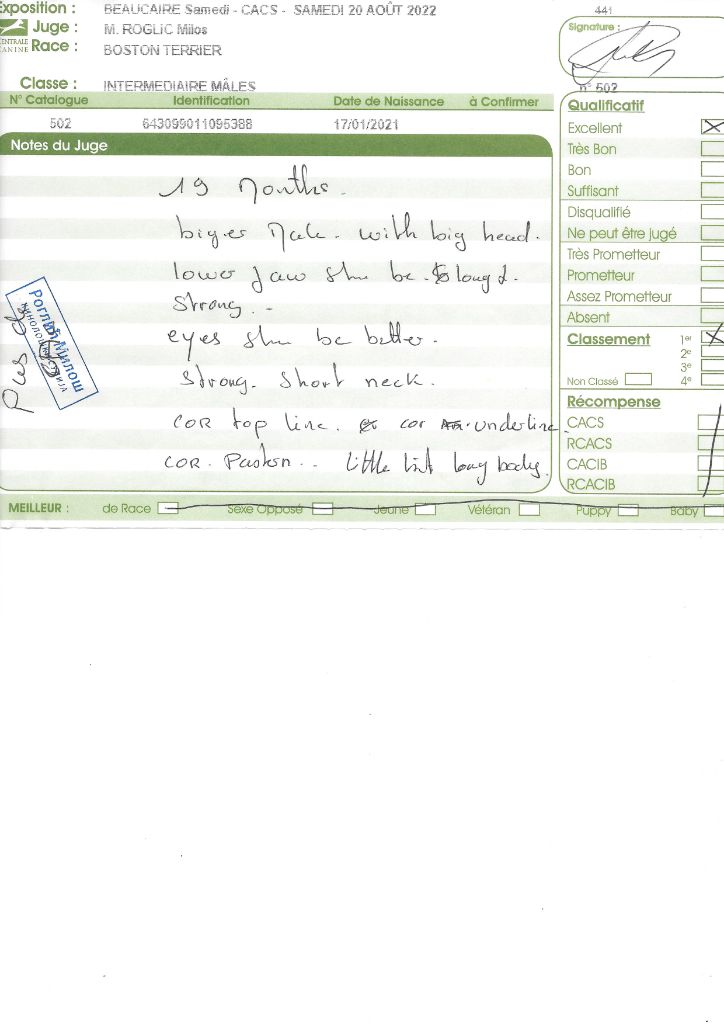 Exposition : BEAUCAIRE Samedi - CACS - SAMEDI 20 AOÛT 2022
441
Juge : M. ROGLIC Milos
Signature :
CENTRALE
CANINE
Race : BOSTON TERRIER
Classe : INTERMEDIAIRE MÂLES
n° 502
N° Catalogue Identification Date de Naissance à Confirmer
502 643099011095388 17/01/2021
Notes du Juge
19 Months.
biger Male. with big head.
lower jaw be. long
Strong. -
eyes be better.
Strong. Short neck.
COR top line. cor underline.
COR. Pastern.. little bit long body.
Pas de
Роглић Милош
Qualificatif
Excellent
Très Bon
Bon
Suffisant
Disqualifié
Ne peut être jugé
Très Prometteur
Prometteur
Assez Prometteur
Absent
Classement 1er
2e
3e
Non Classé 4e
Récompense
CACS
RCACS
CACIB
RCACIB
MEILLEUR : de Race Sexe Opposé Jeune Vétéran Puppy Baby